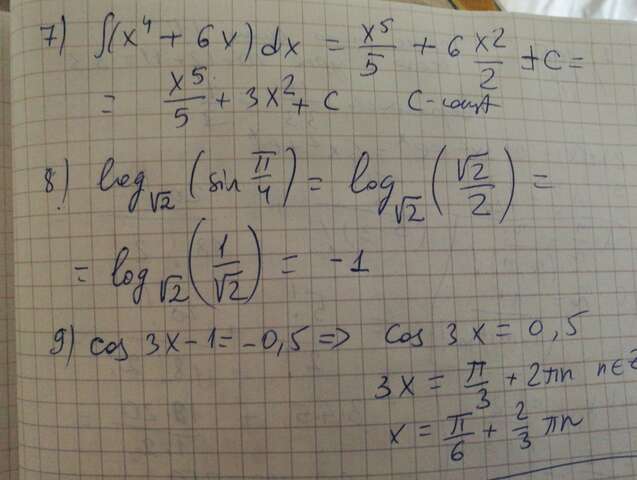 7) ∫(x⁴ + 6x) dx = x⁵/5 + 6 x²/2 + C =
= x⁵/5 + 3x² + C C - const
8) log_√2 (sin π/4) = log_√2 (√2/2) =
= log_√2 (1/√2) = -1
9) cos 3x - 1 = -0,5 => cos 3x = 0,5
3x = π/3 + 2πn n∈Z
x = π/6 + 2/3 πn